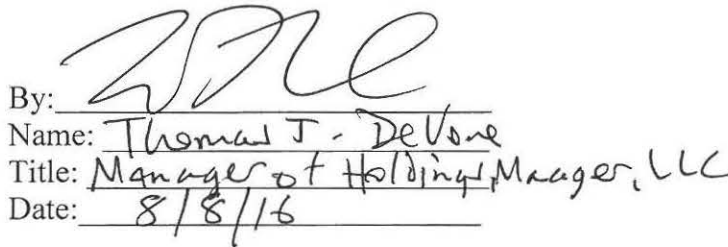 By:
Name: Thomas J. DeVore
Title: Manager of Holdings Manager, LLC
Date: 8/8/16